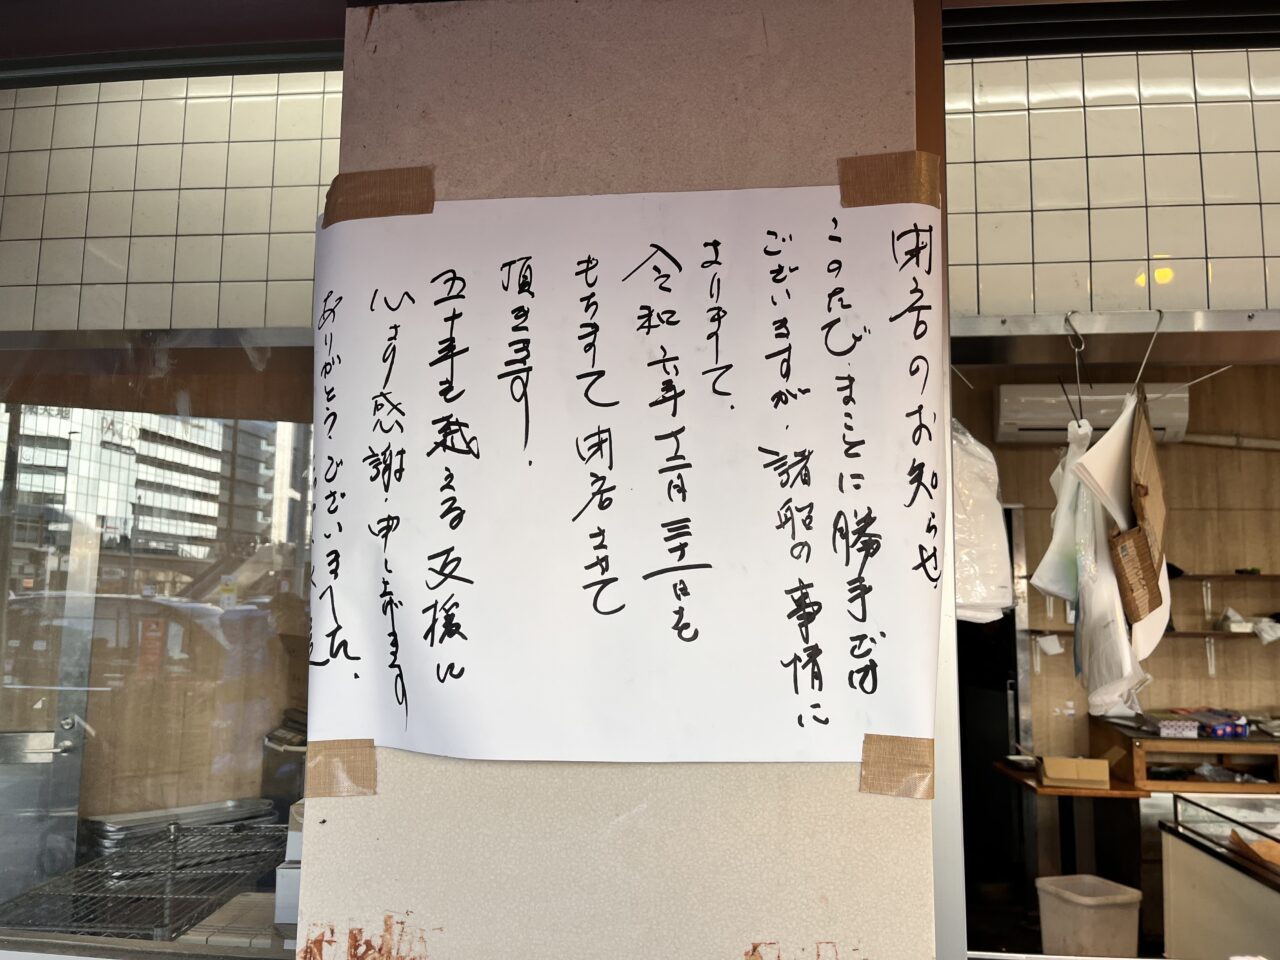 閉店のお知らせ
このたび、まことに勝手では
ございますが、諸般の事情に
よりまして、
令和六年十二月三十一日を
もちまして閉店させて
頂きます。
五十年を越える支援に
心より感謝申し上げます
ありがとうございました。